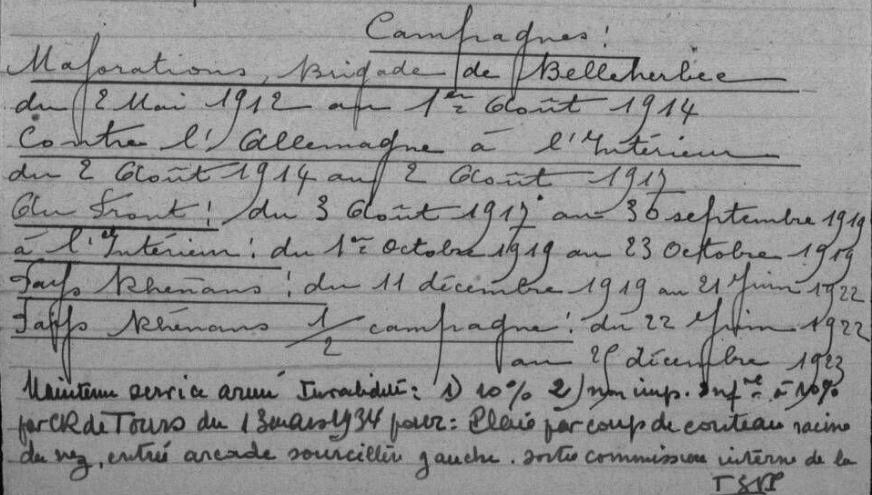 Campagnes:
Majorations, Brigade de Belleherbe
du 2 Mai 1912 au 1er Août 1914
Contre l'Allemagne à l'Intérieur
du 2 Août 1914 au 2 Août 1917
Au Front: du 3 Août 1917 au 30 septembre 1919
à l'Intérieur: du 1er Octobre 1919 au 23 Octobre 1919
Pays Rhénans: du 11 décembre 1919 au 21 Juin 1922
Pays Rhénans 1/2 campagne: du 22 Juin 1922
au décembre 1923
Maintenu service armé Invalidité: 1) 10% 2) non imp. inf re à 10%
par CR de Tours du 13 mars 1934 pour: Plaie par coup de couteau racine
du nez, entrée arcade sourcillière gauche. commission interne de la